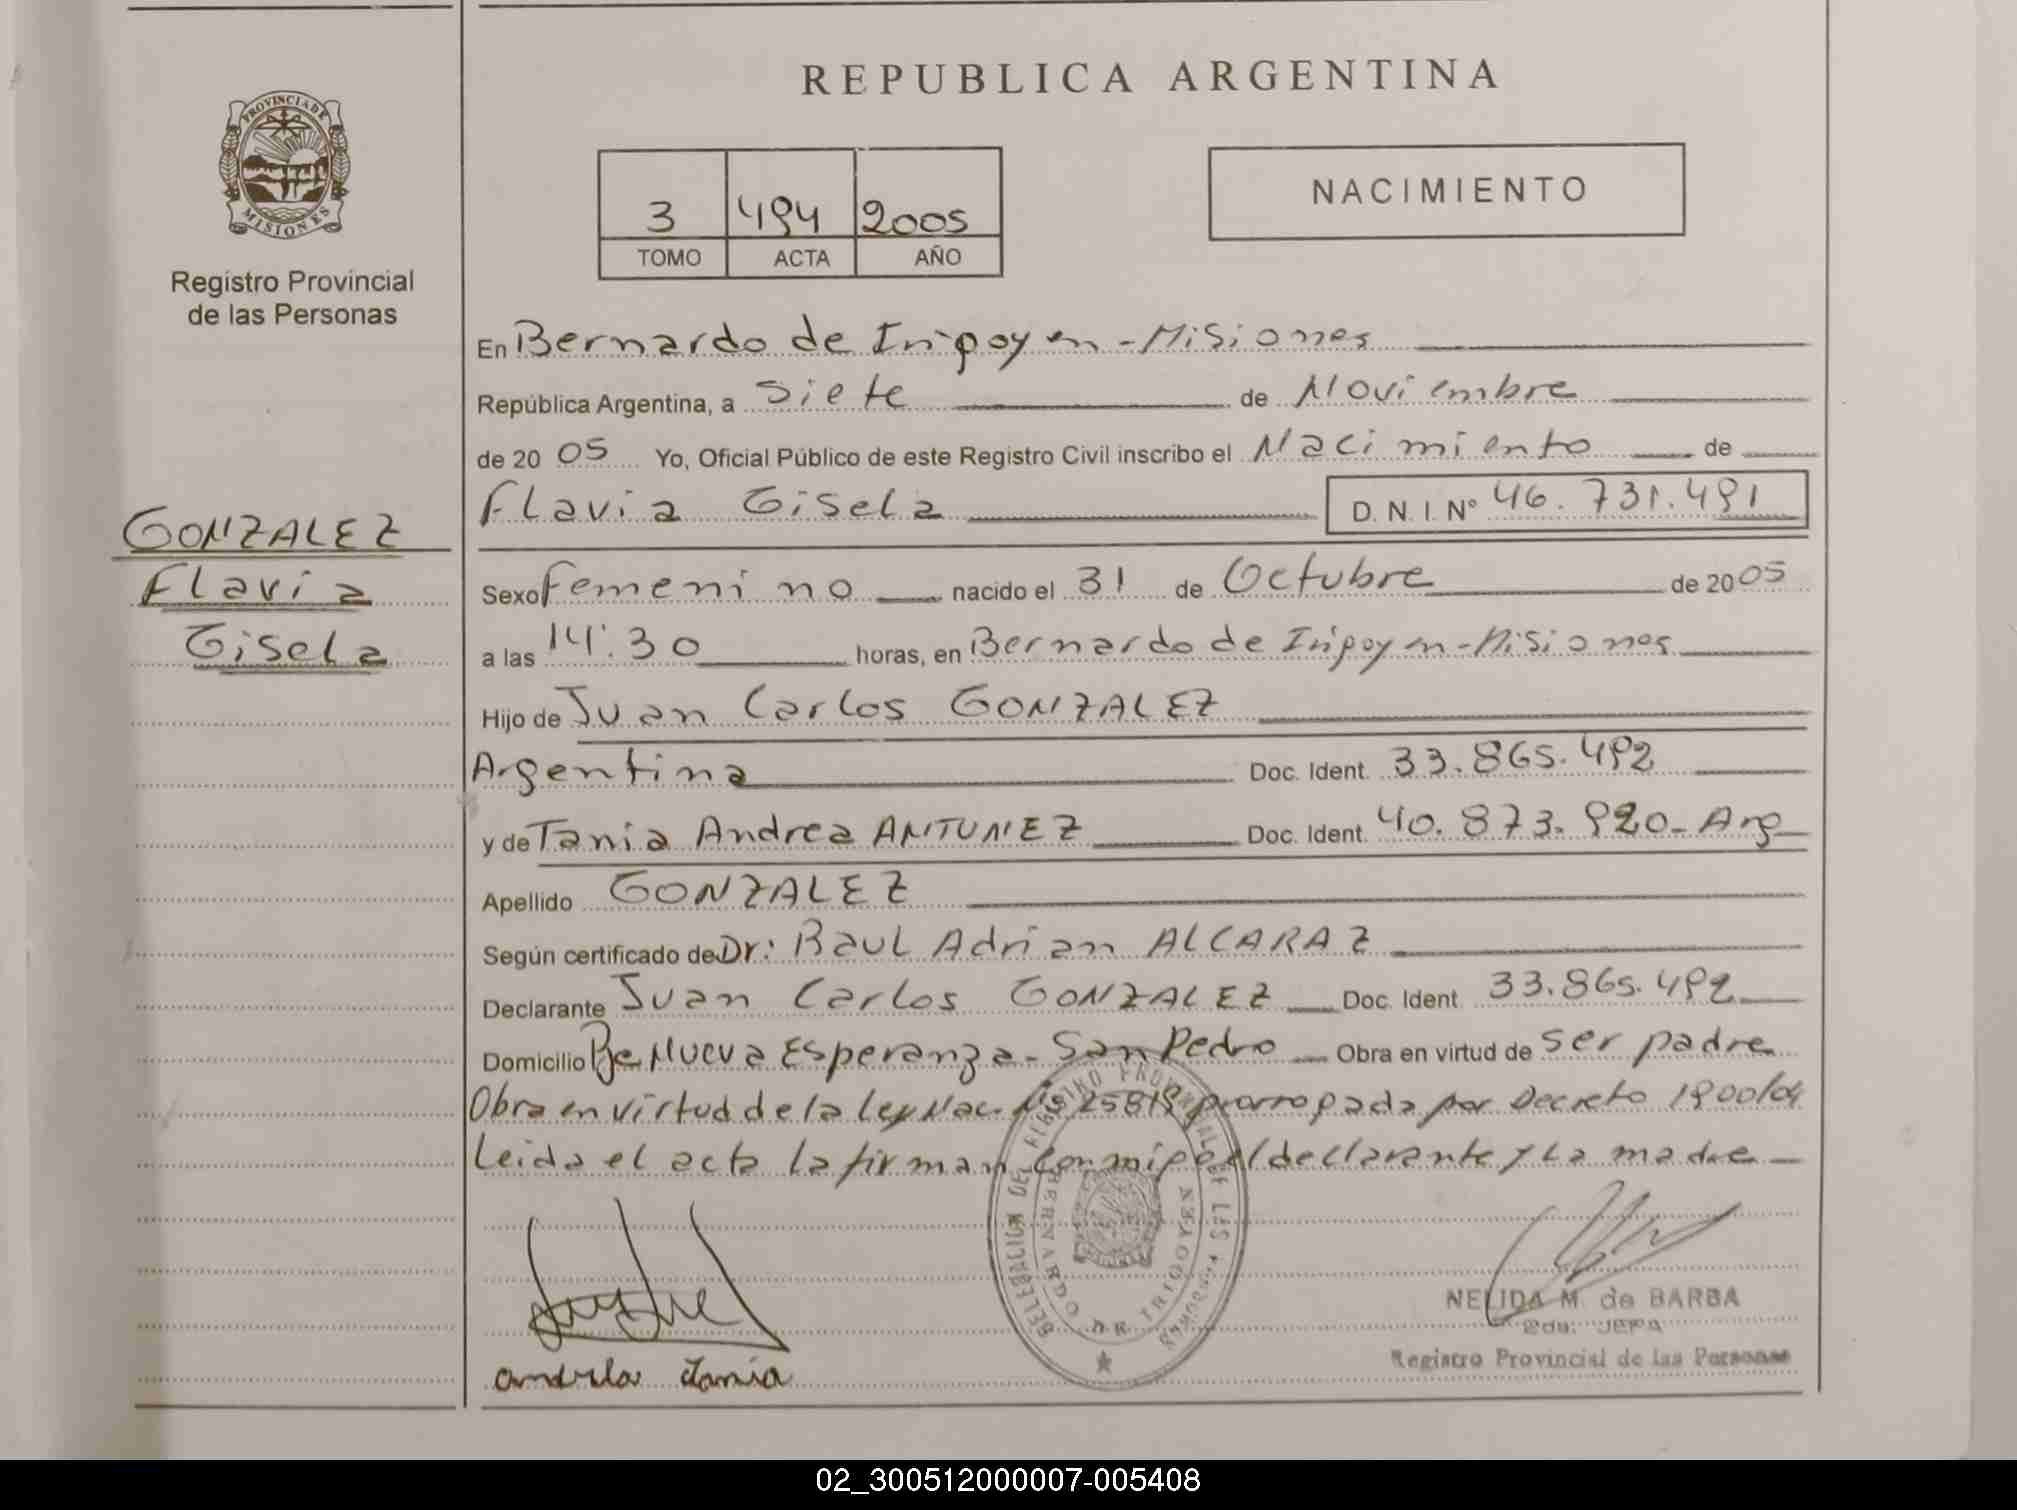 PROVINCIA DE
MISIONES
Registro Provincial
de las Personas
GONZALEZ
Flavia
Gisela
REPUBLICA ARGENTINA
3 494 2005
TOMO ACTA AÑO
NACIMIENTO
En Bernardo de Irigoyen - Misiones
República Argentina, a Siete de Noviembre
de 20 05 Yo, Oficial Público de este Registro Civil inscribo el Nacimiento de
Flavia Gisela D. N. I. Nº 46.731.491
Sexo Femenino nacido el 31 de Octubre de 20 05
a las 14:30 horas, en Bernardo de Irigoyen - Misiones
Hijo de Juan Carlos GONZALEZ
Argentina Doc. Ident. 33.865.492
y de Tania Andrea ANTUNEZ Doc. Ident. 40.873.920 - Arg
Apellido GONZALEZ
Según certificado de Dr: Raul Adrian ALCARAZ
Declarante Juan Carlos GONZALEZ Doc. Ident 33.865.492
Domicilio Pje Nueva Esperanza - San Pedro Obra en virtud de ser padre
Obra en virtud de la Ley Nac. Nº 25819 prorrogada por Decreto 1900/04
Leida el acta la firman conmigo el declarante y La madre
andrea Tania
DELEGACION DEL REGISTRO PROVINCIAL DE LAS PERSONAS
BERNARDO DE IRIGOYEN
NELIDA M. de BARBA
JEFA
Registro Provincial de las Personas
02_300512000007-005408